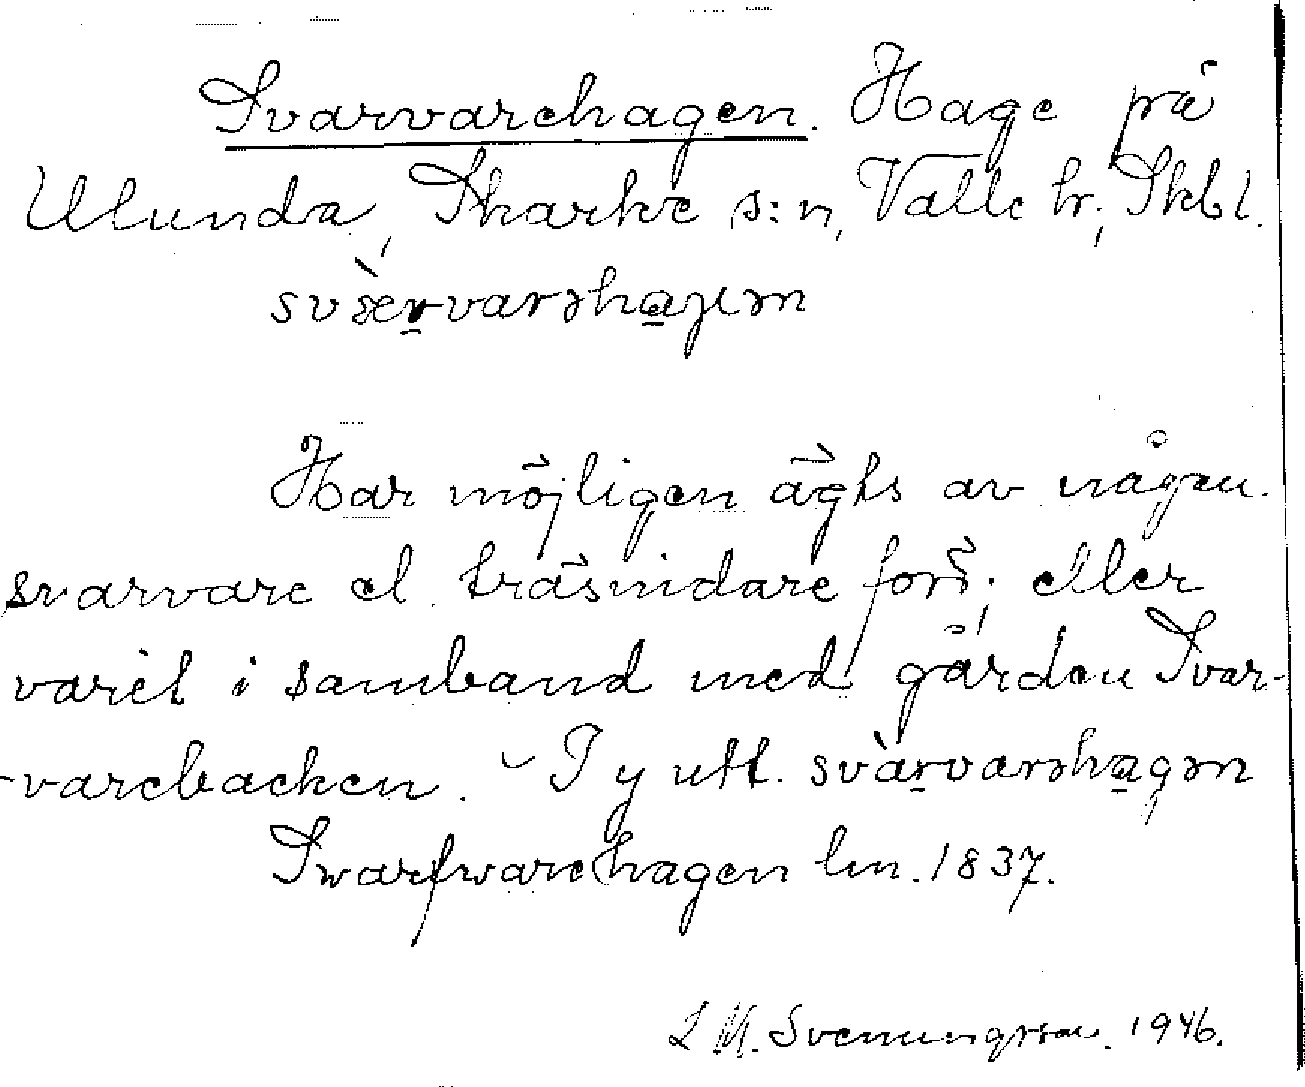 Svarvarehagen. Hage på
Ulunda, Skarke s:n, Valle hr, Skbl.
svæ̀rvarəhaɡən
Har möjligen ägts av någon
svarvare el. träsnidare förr; eller
varit i samband med gården Svar-
-varebacken. I y utt. svàrvarəhagən
Swarfwarehagen lm. 1837.
L M. Svenungsson. 1946.